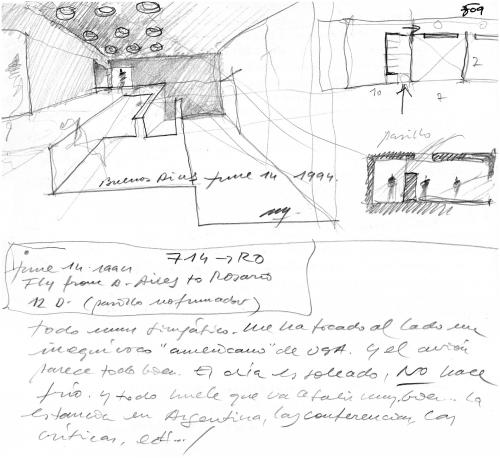 309
10
7
2
pasillo
Buenos Aires June 14 1994.
714 → RO
June 14 1994
Fly from B. Aires to Rosario
12 D. (pasillo no fumador)
todo muy simpático. me ha tocado al lado un
inequívoco "americano" de USA. y el avión
parece todo bien. El día es soleado, NO hace
frío. y todo huele que va a salir muy bien.. la
estancia en Argentina, las conferencias, las
críticas, etc...